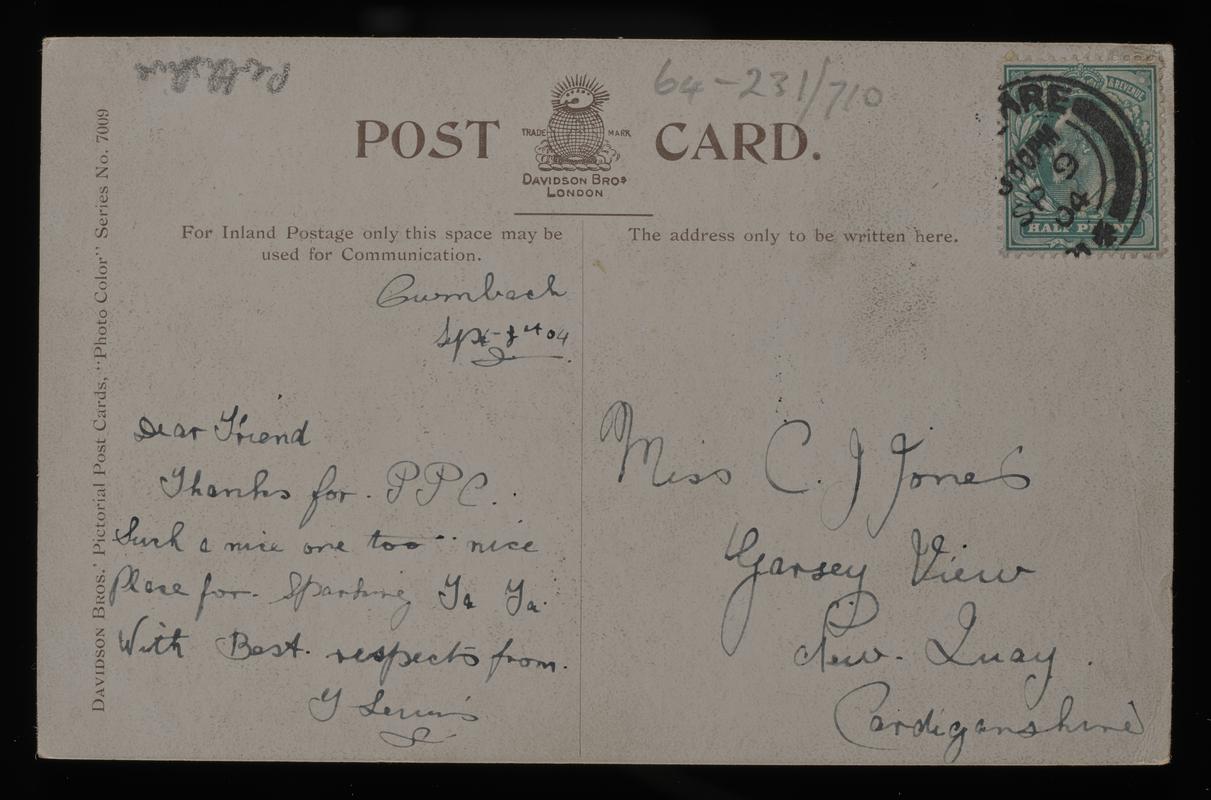 Perthshire
64-231/710
POST CARD.
TRADE MARK
DAVIDSON BROS
LONDON
DAVIDSON BROS.' Pictorial Post Cards, "Photo Color" Series No. 7009
For Inland Postage only this space may be
used for Communication.
The address only to be written here.
& REVENUE
HALF PENNY
ARE
SP 9
04
Cwmbach
Sept 04
Dear Friend
Thanks for. P P C.
Such a nice one too nice
Place for. Sparking Ya Ya.
With Best. respects from.
Lewis
Miss C. J Jones
Garsey View
New. Quay.
Cardiganshire